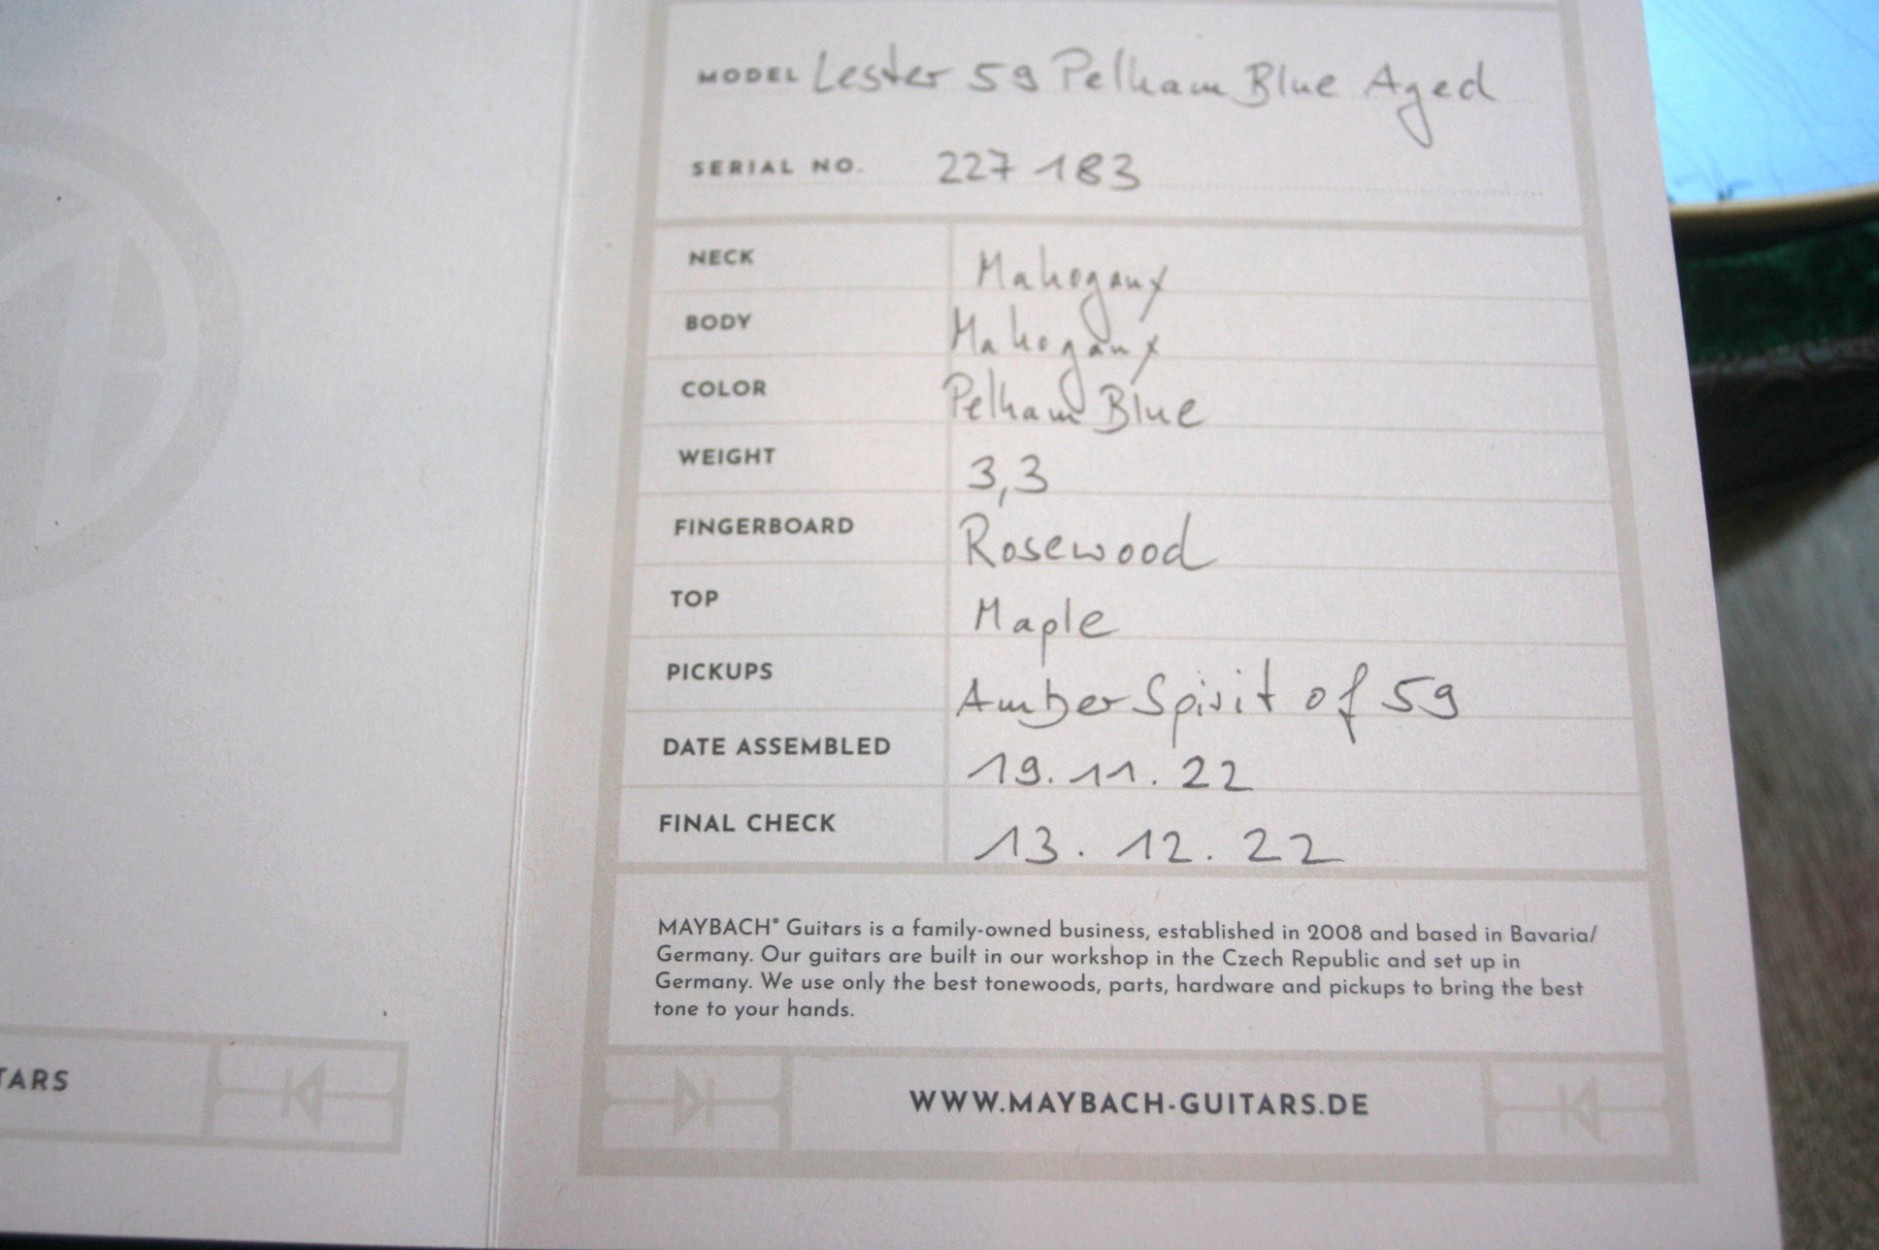 MODEL Lester 59 Pelham Blue Aged
SERIAL NO. 227 183
NECK Mahogany
BODY Mahogany
COLOR Pelham Blue
WEIGHT 3,3
FINGERBOARD Rosewood
TOP Maple
PICKUPS Amber Spirit of 59
DATE ASSEMBLED 19.11.22
FINAL CHECK 13.12.22
MAYBACH® Guitars is a family-owned business, established in 2008 and based in Bavaria/
Germany. Our guitars are built in our workshop in the Czech Republic and set up in
Germany. We use only the best tonewoods, parts, hardware and pickups to bring the best
tone to your hands.
TARS
WWW.MAYBACH-GUITARS.DE